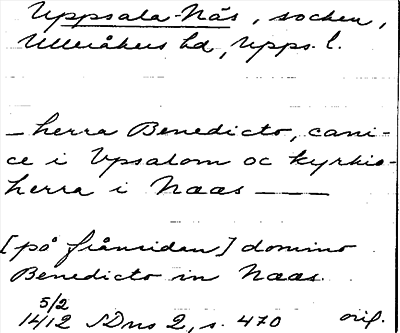 Uppsala-Näs, socken,
Ulleråkers hd, Upps. l.
– herra Benedicto, cani-
ce i Upsalom oc kyrkio-
herra i Naas ——
[på frånsidan] domino
Benedicto in Naas.
5/2
1412 SDns 2, s. 470 orig.